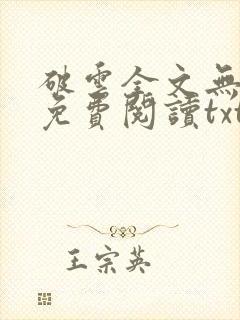 破雲全文無
免費閱讀txt
王宗英